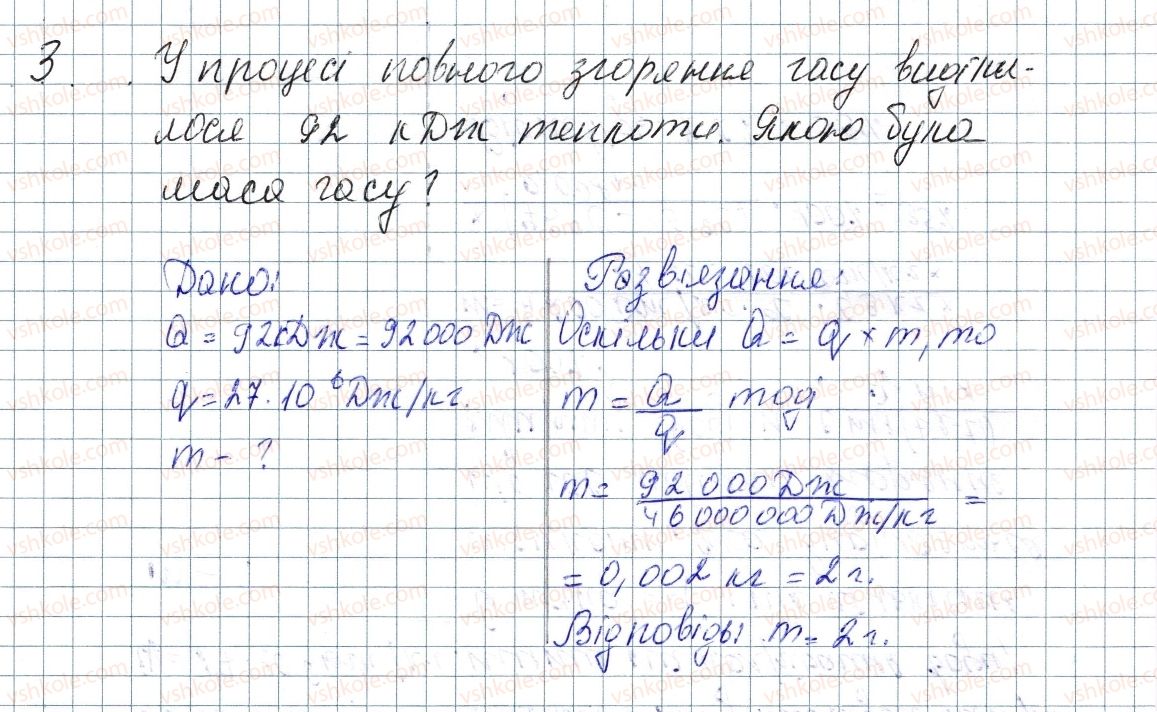 3. У процесі повного згоряння гасу виділи-
лося 92 кДж теплоти. Якою була
маса гасу?
Дано:
Q = 92кДж = 92 000 Дж
q = 27 · 10⁶ Дж/кг.
m - ?
Розв'язання:
Оскільки Q = q × m, то
m = Q/q тоді
m = 92 000 Дж / 46 000 000 Дж/кг =
= 0,002 кг = 2 г.
Відповідь: m = 2 г.